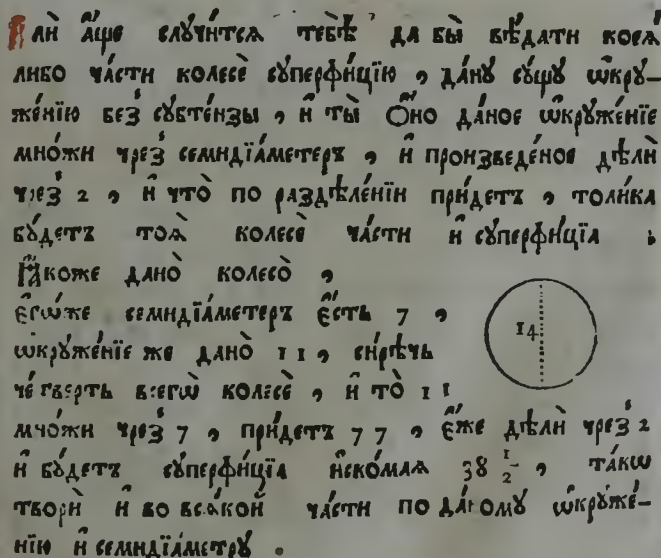 И҆лѝ а҆́ще слꙋчи́тсѧ тебѣ̀ да бы̀ вѣ́дати коеѧ̀
либо ча́сти колесѐ сꙋперфи́цїю , да́нꙋ сꙋ́щꙋ ѡ҆крꙋ-
же́нїю без̾ сꙋбте́нзы , и҆ ты̀ О҆́но да́ное ѡ҆крꙋже́нїе
мно́жи чрез̾ семидїа́метеръ , и҆ произведе́ное дѣлѝ
чрез̾ 2 , и҆ что̀ по раздѣле́нїи прі́идетъ , толи́ка
бꙋ́детъ тоѧ̀ колесѐ ча́сти и҆ сꙋперфи́цїа :
Ꙗ҆́коже дано̀ колесо̀ ,
є҆гѡ́же семидїа́метеръ є҆́сть 7 ,
ѡ҆крꙋже́нїе же дано̀ 11 , си́рѣчь
че́тверть всегѡ̀ колесѐ , и҆ то̀ 11
14
мно́жи чрез̾ 7 , прі́идетъ 77 , є҆́же дѣлѝ чрез̾ 2
и҆ бꙋ́детъ сꙋперфи́цїа и҆ско́маѧ 38 1/2 , та́кѡ
творѝ и҆ во всѧ́кой ча́сти по да́номꙋ ѡ҆крꙋже́-
нїю и҆ семидїа́метрꙋ .